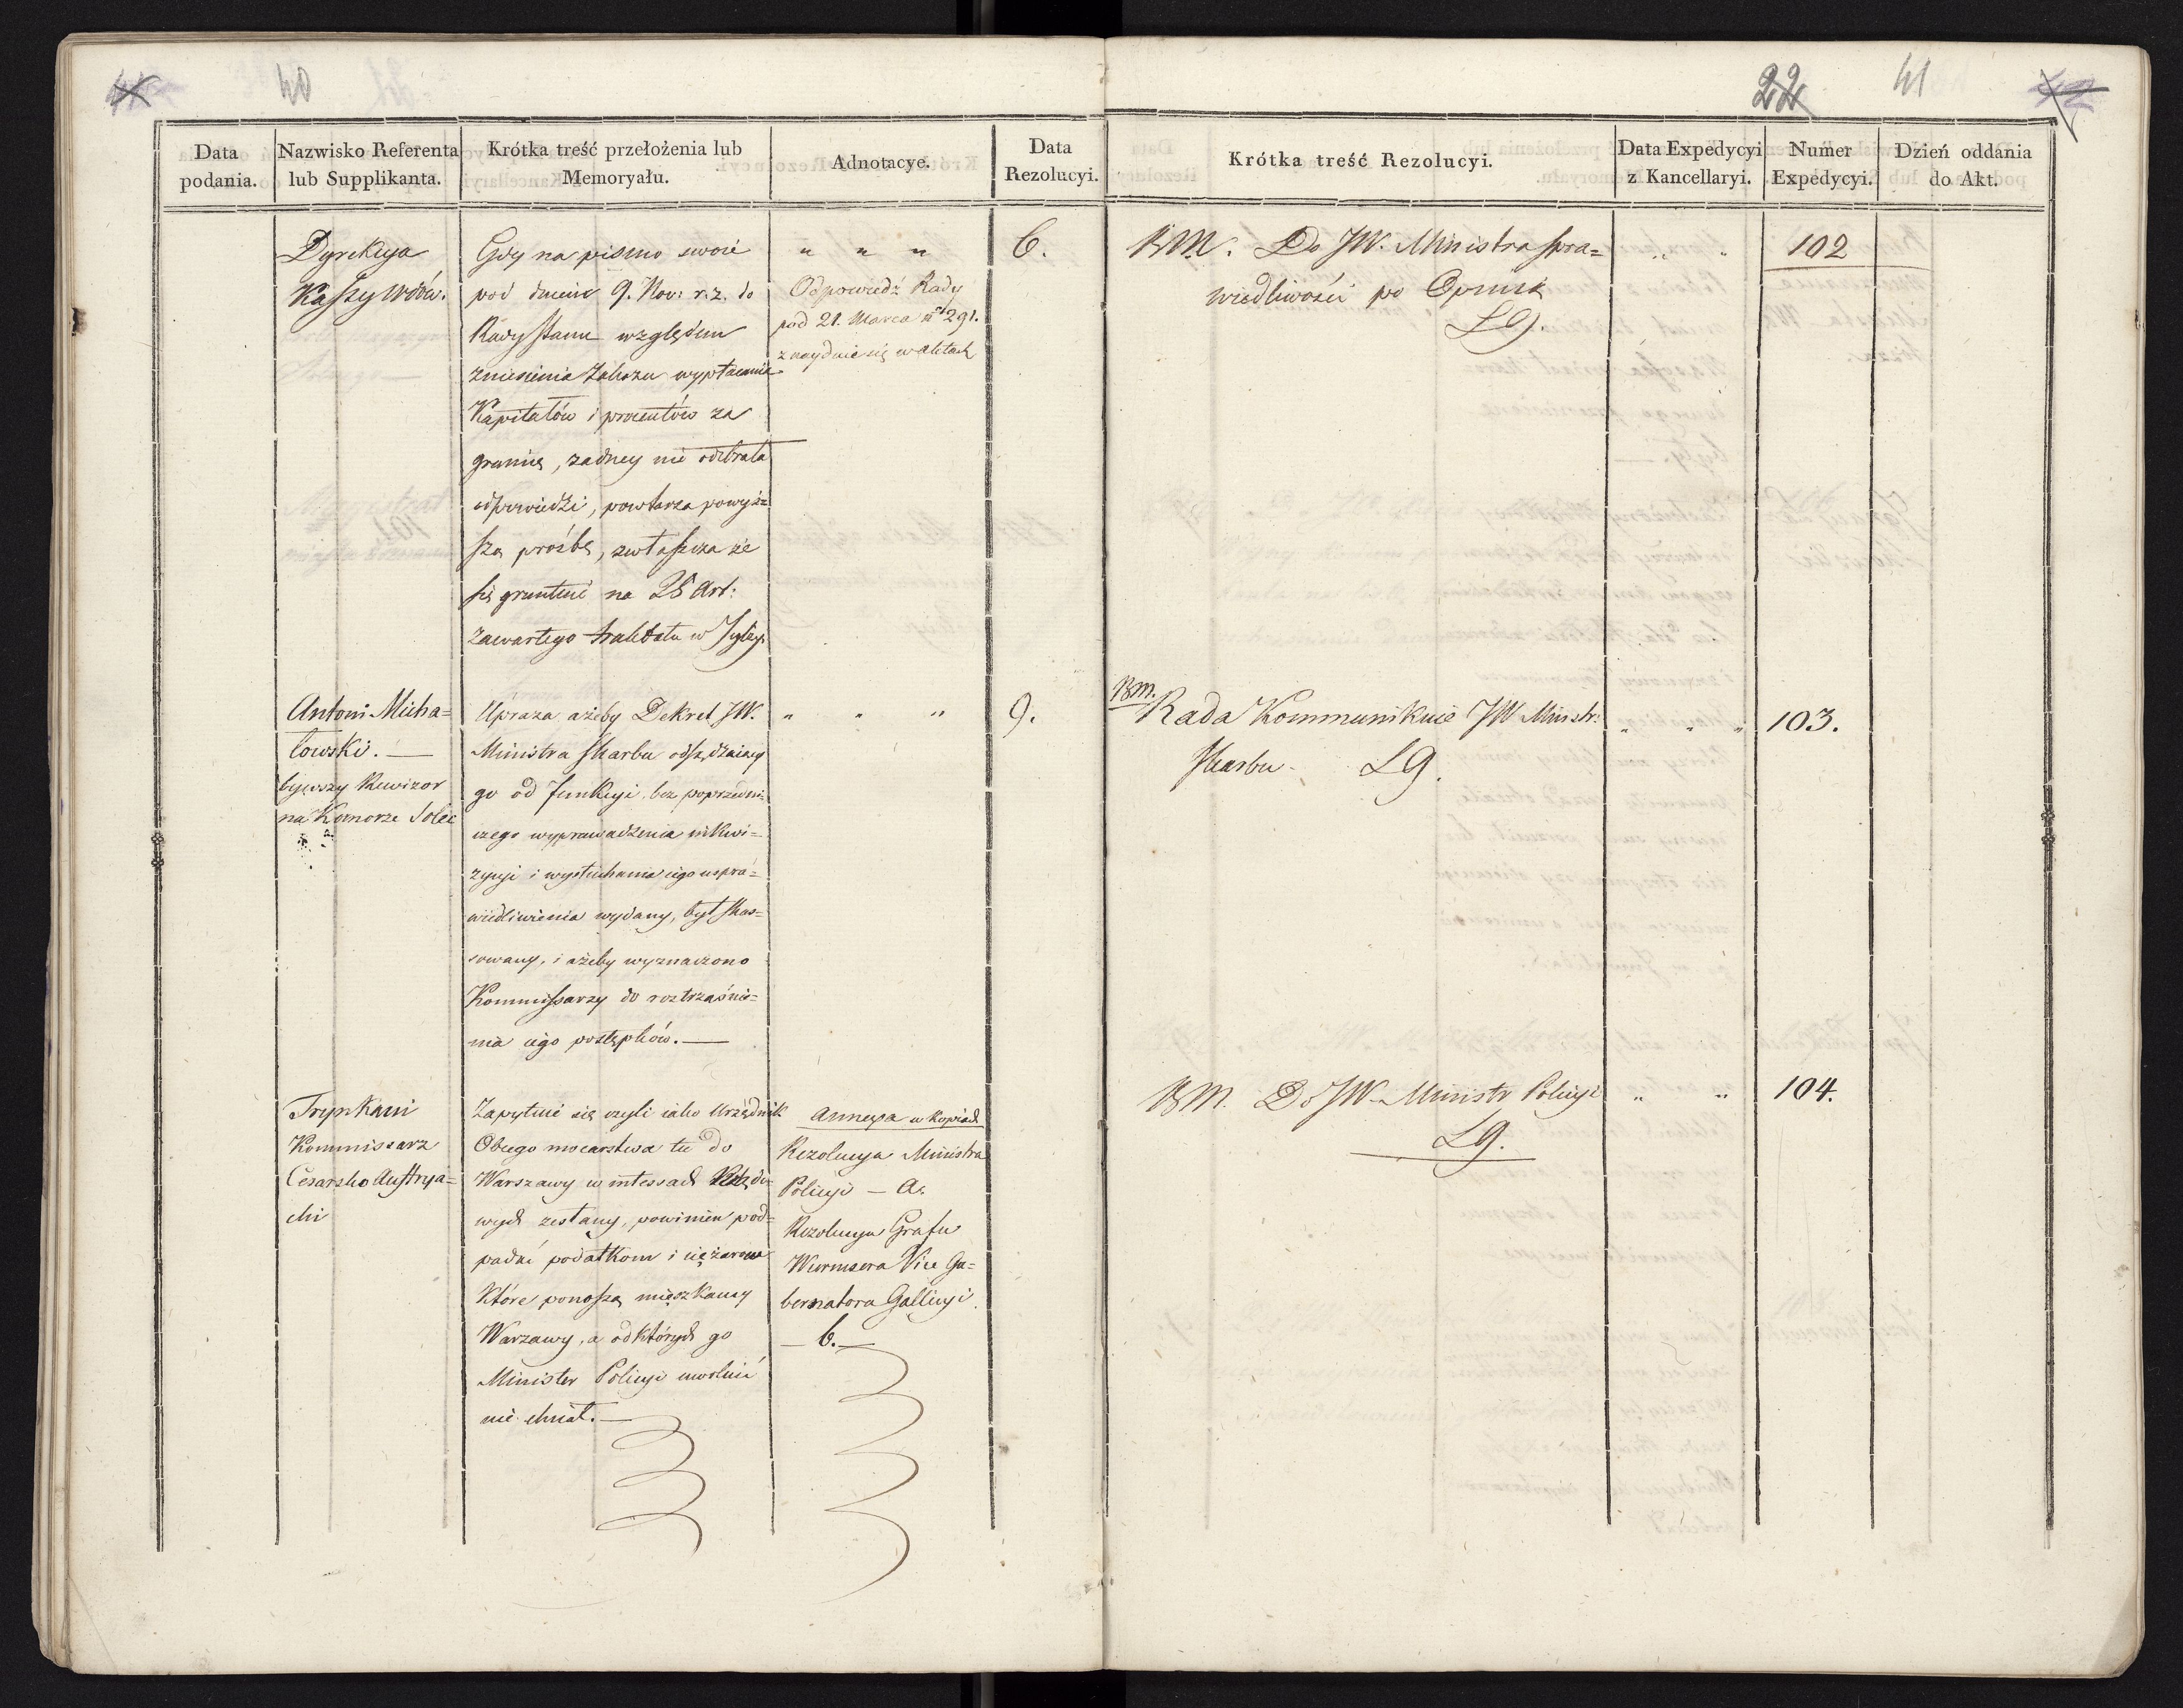 40
22
41
Data podania.
Nazwisko Referenta lub Supplikanta.
Krótka treść przełożenia lub Memoryału.
Adnotacye.
Data Rezolucyi.
Krótka treść Rezolucyi.
Data Expedycyi z Kancellaryi.
Numer Expedycyi.
Dzień oddania do Akt.
Dyrekcya
Kassy Wdów.
Gdy na pismo swoie
pod dniem 9. Nov: r. z. do
Rady Stanu względem
zniesienia Zakazu wypłacania
Kapitałów i procentów za
granicę, żadney nie odebrała
odpowiedzi, powtarza powyż=
szą prośbę, zwłaszcza że
się gruntuie na 25 Art:
zawartego traktatu w Tylży.
" " "
Odpowiedź Rady
pod 21. Marca n 291.
znayduie się w aktach
6.
BM. Do JW. Ministra Spra=
wiedliwości po Opinię
LG.
" "
102
Antoni Micha=
łowski. —
bywszy Rewizor
na Komorze Solec
Uprasza ażeby Dekret JW.
Ministra Skarbu odsądzaiący
go od funkcyi, bez poprzedni=
czego wyprowadzenia inkwi=
zycyi i wysłuchania iego uspra=
wiedliwienia wydany, był skas=
sowany, i ażeby wyznaczono
Kommissarzy do roztrząśnie=
nia iego postępków. —
" " "
9.
BM.
Rada Kommunikuie JW Ministr:
Skarbu. LG.
" " "
103.
Trypkani
Kommissarz
Cesarsko Austrya=
cki
Zapytuie się czyli iako Urzędnik
Obcego mocarstwa tu do
Warszawy w intessach Rządo=
wych zesłany, powinien pod=
padać podatkom i ciężarom
Które ponoszą mieszkańcy
Warszawy, a od których go
Minister Policyi uwolnić
nie chciał. —
Annexa w kopiach
Rezolucya Ministra
Policyi — a.
Rezolucya Grafa
Wurmsera Vice Gu=
bernatora Gallicyi
— b. —
BM. Do JW Ministr Policyi
LG.
" "
104.